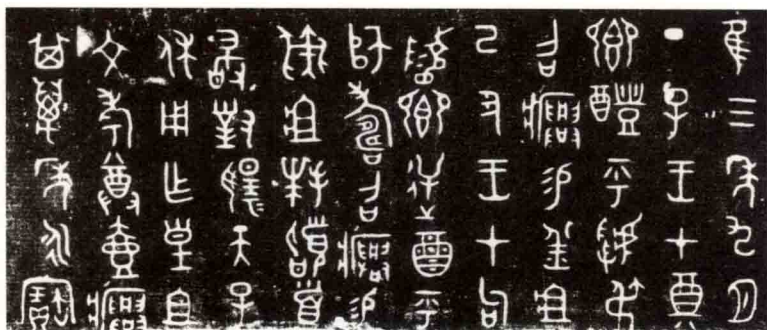 隹三年九月
丁巳王才奠
鄉醴乎虢弔
召𤼈易羔俎
己丑王才句
陵鄉逆酉乎
師壽召𤼈易
彘俎拜稽首
敢對揚天子
休用乍皇且
文考尊壺𤼈
其萬年永寶